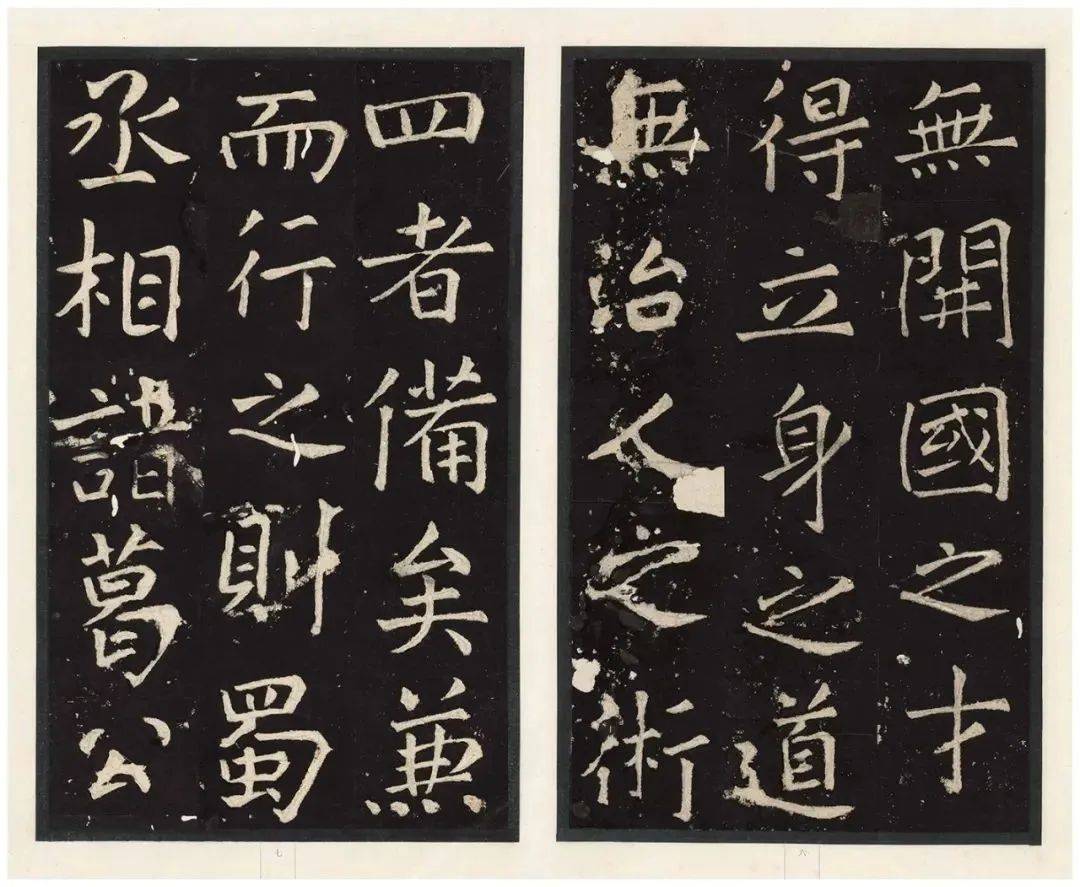 無開國之才
得立身之道
無治人之術
四者備矣兼
而行之則蜀
丞相諸葛公
六
七